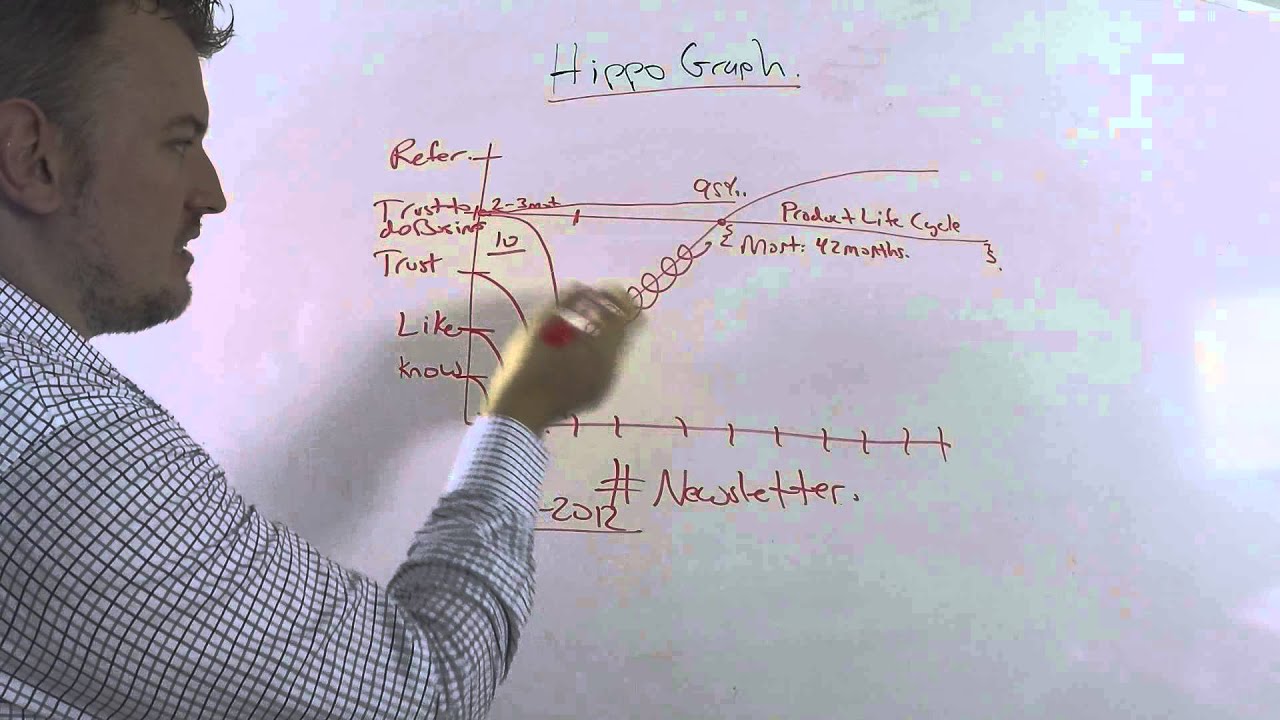 Hippo Graph.
Refer.
95%.
Trust to 2-3 mot
do Busine
Product Life Cycle
10
Most: 42 months.
Trust
Like
Know
# Newsletter.
-2012